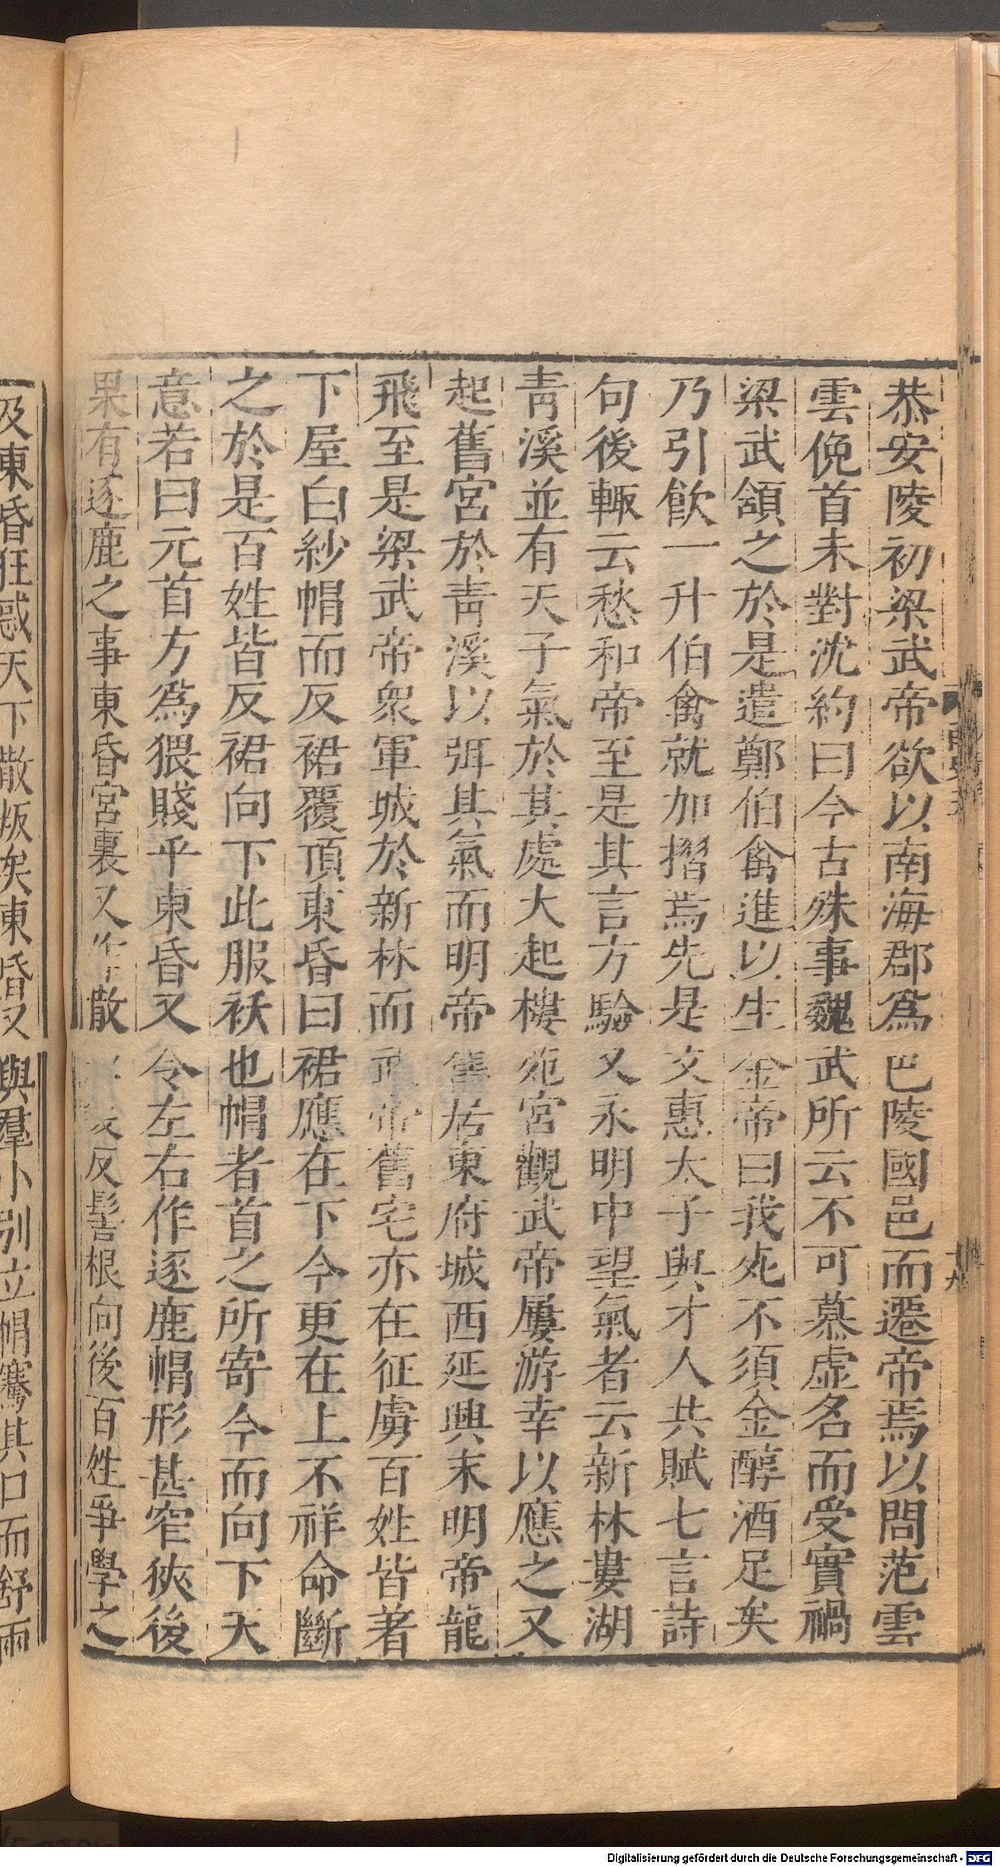 恭安陵初梁武帝欲以南海郡爲巴陵國邑而遷帝焉以問范雲
雲俛首未對沈約曰今古殊事魏武所云不可慕虛名而受實禍
梁武頷之於是遣鄭伯禽進以生金帝曰我死不須金醇酒足矣
乃引飮一升伯禽就加摺焉先是文惠太子與才人共賦七言詩
句後輙云愁和帝至是其言方驗又永明中望氣者云新林婁湖
靑溪並有天子氣於其處大起樓苑宮觀武帝屢游幸以應之又
起舊宮於靑溪以弭其氣而明帝舊居東府城西延興末明帝龍
飛至是梁武帝衆軍城於新林而武帝舊宅亦在征虜百姓皆著
下屋白紗帽而反裙覆頂東昏曰裙應在下今更在上不祥命斷
之於是百姓皆反裙向下此服袄也帽者首之所寄今而向下天
意若曰元首方爲猥賤乎東昏又令左右作逐鹿帽形甚窄狹後
果有逐鹿之事東昏宮裏又作散反髻根向後百姓爭學之
及東昏狂惑天下散叛矣東昏又與羣小別立帽騫其口而舒兩
Digitalisierung gefördert durch die Deutsche Forschungsgemeinschaft - DFG